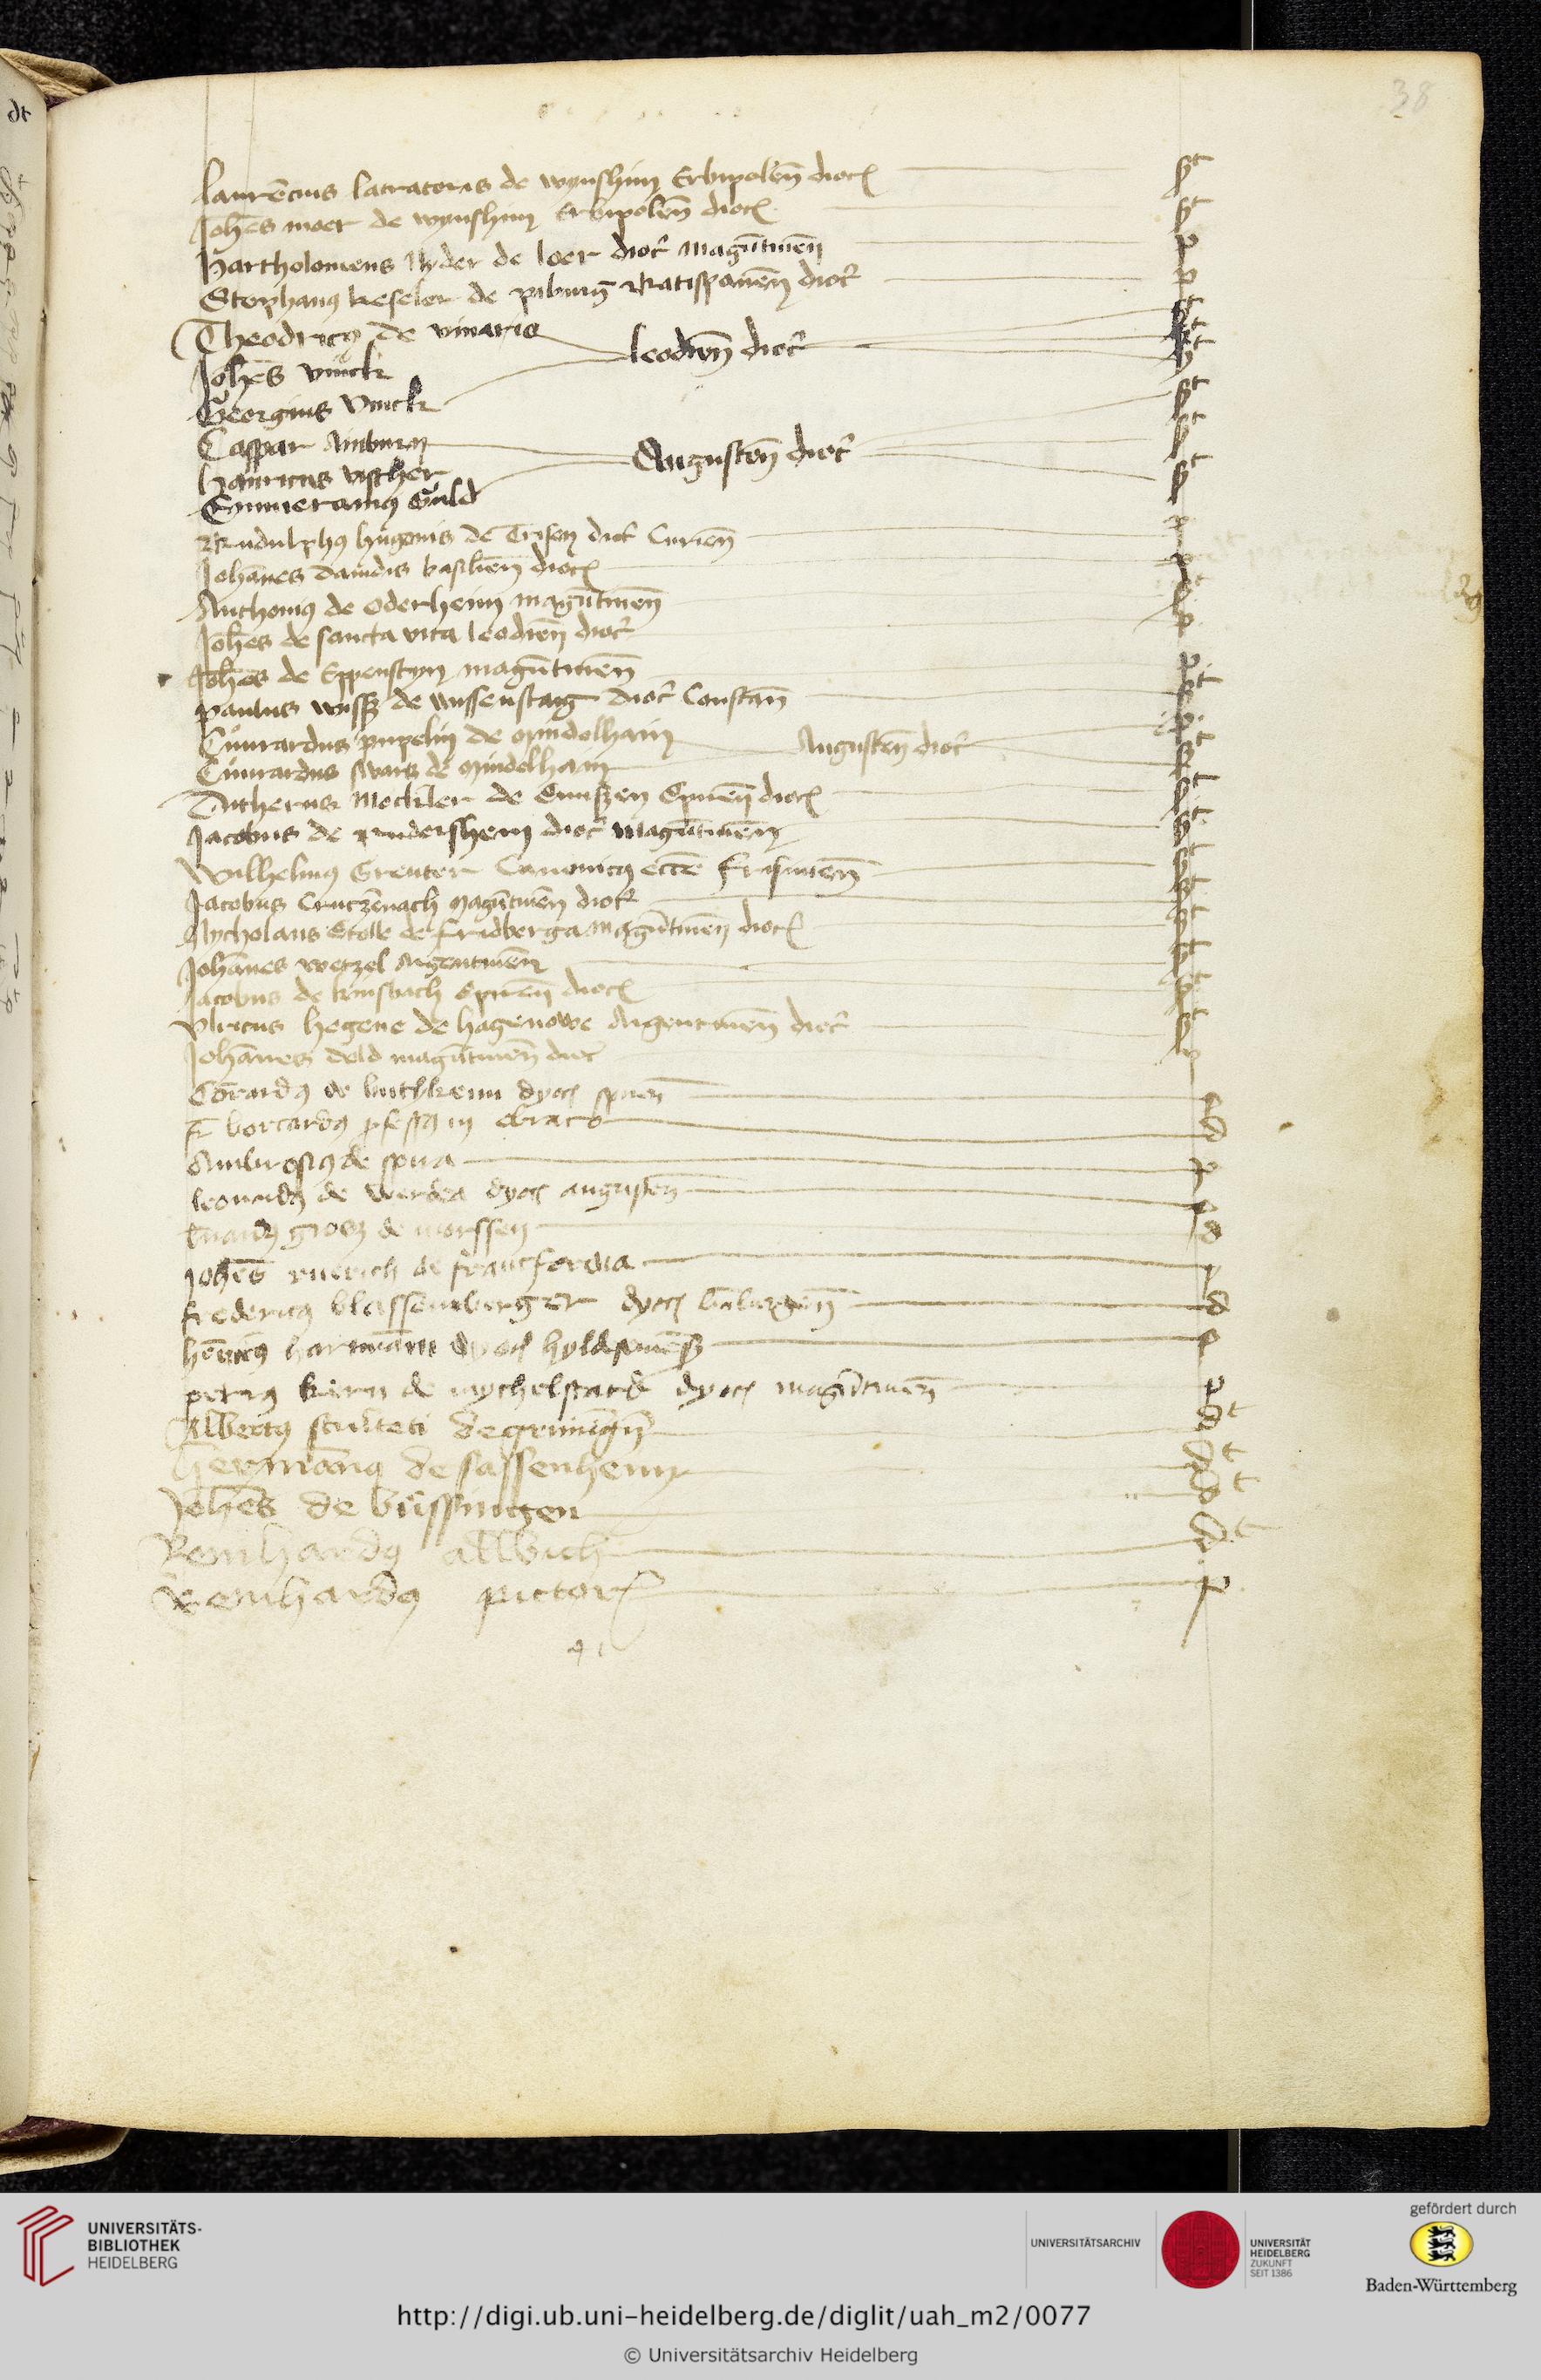 38
laurēcius latratoris de wynshim Erbipoleñ dioc̄ dt
Johēs moer de wynshim Erbipoleñ dioc̄ dt
Bartholomeus Ryder de loer dioc̄ magūtineñ p
Stephanus keseler de piburg Ratisponeñ dioc̄ p
Theodricus de vinariis
Johēs vinck leodieñ dioc̄ dt
Georgius vinck dt
Caspar Ainburn dt
hainricus vischer Augusteñ dioc̄ dt
Emmeramus Guld dt
Rudulphus hugonis de Trisen dioc̄ Curieñ p
Johānes dauidis basilieñ dioc̄ p
Anthonius de oderhenn magūtineñ dt
Johēs de sancta vita leodieñ dioc̄ p
Johēs de Eppenstyn magūtineñ p
paulus wissz de wissenstaig dioc̄ Constañ dt
Cūnrardus pupelin de mindelhain Augusteñ dioc̄ p
Cūnrardus swarz de mindelhain dt
Ditherus Mechler de Spireñ dioc̄ dt
Jacobus de rudershem dioc̄ magūtineñ dt
Wilhelmus Greuter Canonicus ecc̄e frisingeñ dt
Jacobus Crutzēnach magūtineñ dioc̄ dt
Nycholaus Stolle de fridberga magūtineñ dioc̄ dt
Johānes wetzel Argentineñ dt
Jacobus de dioc̄ pt
Vlricus hegene de hagenowe Argentineñ dioc̄ dt
Johānes dold magūtineñ dioc̄ p
Cōrardus de dyoc̄ spireñ p
fr borcardus ꝓfessus in ebraco d
Ambrosius de spira p
leonardus de werdea dyoc̄ augusteñ p
grosz de morssen d
Johēs ruerich de francfordia p
fredericus blassenberger dyoc̄ d
hēricus harmānī dyoc̄ p
petrus kern de mychelstadt dyoc̄ magūtineñ p
Albertus sculteti de grūningē dt
hermānus de sassenhenn dt
Johēs de bussingen dt
Reinhardus allbich dt
Reinhardus pictoris p
41
UNIVERSITÄTS-
BIBLIOTHEK
HEIDELBERG
UNIVERSITÄTSARCHIV
UNIVERSITÄT
HEIDELBERG
ZUKUNFT
SEIT 1386
gefördert durch
Baden-Württemberg
http://digi.ub.uni-heidelberg.de/diglit/uah_m2/0077
© Universitätsarchiv Heidelberg